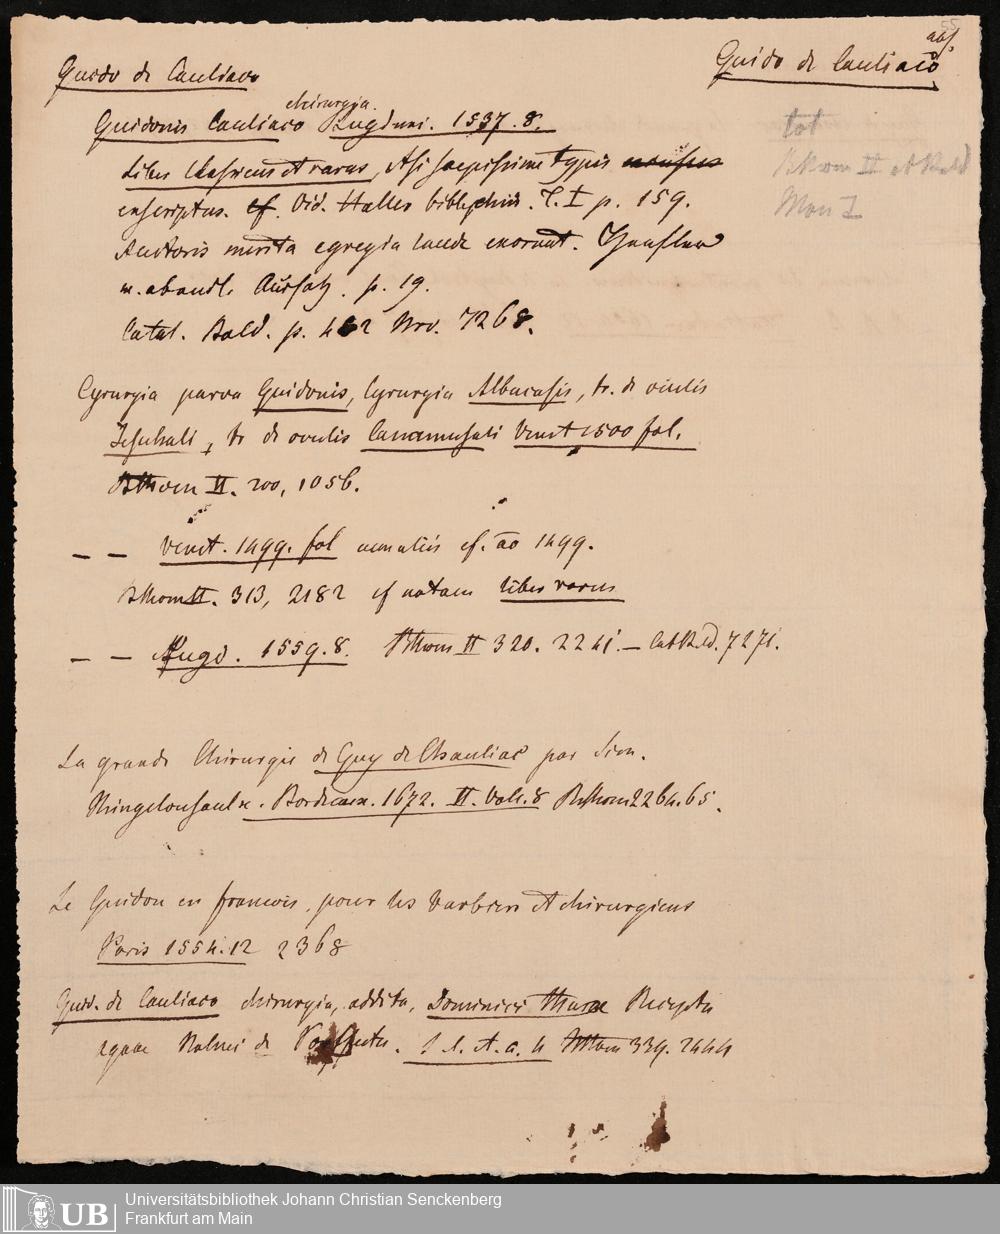 55
abs.
Guido de Cauliaco
Guido de Cauliaco
chirurgia.
Guidonis Cauliaco Lugduni. 1537. 8.
Liber et rarus, typis
cf. Vid. Haller bibl. chir. T. I p. 159.
Auctoris merita egregia laude exornat. Hensler
v. abendl. Aussatz. p. 19.
Catal. Bald. p. 482 Nro. 7268.
tot
II et Bald
Mon I
Cyrurgia parva Guidonis, Cyrurgia Albucasis, tr. de oculis
Jesuhali, tr de oculis Canamusali Venet 1500 fol.
II. 200, 1056.
— — Venet. 1499. fol cf. ao 1499.
II. 313, 2182 cf notam liber rarus
— — Lugd. 1559. 8. II 320. 2241. — Cat Bald. 7271.
La grande Chirurgie de Guy de Chauliac par Sim.
Mingelousaulx. Bordeaux. 1672. II. Voll. 8 2264. 65.
Le Guidon en francois, pour les barbiers et chirurgiens
Paris 1554. 12 2368
Guid. de Cauliaco chirurgia, addita, Dominici Recepta
aquae Balnei de Porrecta. S l. et. a. 4 339. 2444
UB
Universitätsbibliothek Johann Christian Senckenberg
Frankfurt am Main